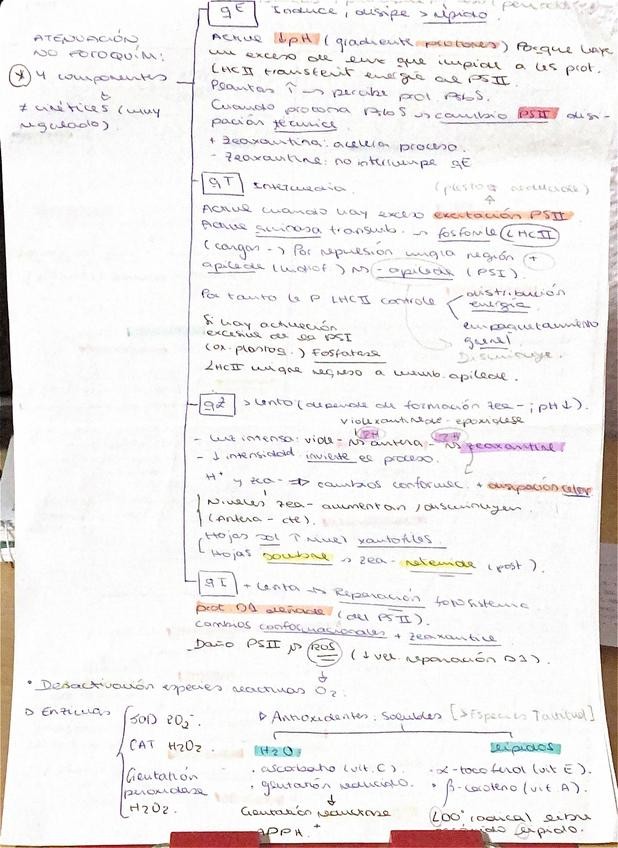 qE Induce, disipa > rápido
ATENUACIÓN
NO FOTOQUÍM:
4 componentes
≠ cinéticas (muy
regulado).
Activa ↓pH (gradiente protones) Porque hay
un exceso de luz que impide a las prot.
LHCII transferir energía al PSII.
Plantas ↑ → percibe por PsbS.
Cuando protona PsbS → cambio PSII disi-
pación térmica
+ Zeaxantina: acelera proceso.
- Zeaxantina: no interrumpe qE
qT Intermedia.
Activa cuando hay exceso excitación PSII
Activa quinasa → fosforila LHCII
(cargas -) Por repulsión migra región +
apilada → - apilada (PSI).
Por tanto la P LHCII controla
distribución
energía
empaquetamiento
grana
Disminuye.
Si hay activación
excesiva de la PSI
(ox. plastoq.) Fosfatasa
LHCII migra regreso a memb. apilada.
qZ > lento (depende de formación zea - ; pH ↓)
violaxantina de-epoxidasa
- Luz intensa: viola → antera → zeaxantina
- ↓ intensidad invierte el proceso.
H+ y zea → cambios conformac. + disipación calor
Niveles zea- aumentan / disminuyen
(Antera - cte).
Hojas sol ↑ nivel xantofilas.
Hojas sombra → zea - retenida (post).
qI + lenta → Reparación fotosistema
prot D1 dañada (del PSII).
cambios conformacionales + zeaxantina
Daño PSII → ROS (↓ vel. reparación D1).
• Desactivación especies reactivas O2:
▷ Enzimas
SOD 2O2-.
CAT H2O2.
Glutatión
peroxidasa
H2O2.
▷ Antioxidantes: Solubles
H2O
• ascorbato (vit. C).
• glutatión reducido.
Glutatión reductasa
lípidos
• α-tocoferol (vit E).
• β-caroteno (vit. A).
LOO° radical